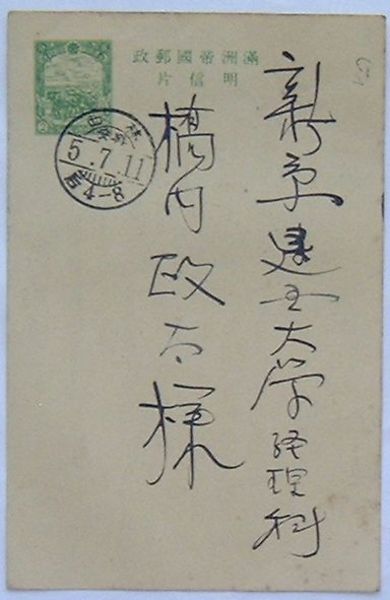 滿洲帝國郵政
明信片
5.7.11
后4-8
新京建国大学経理科
橋内様